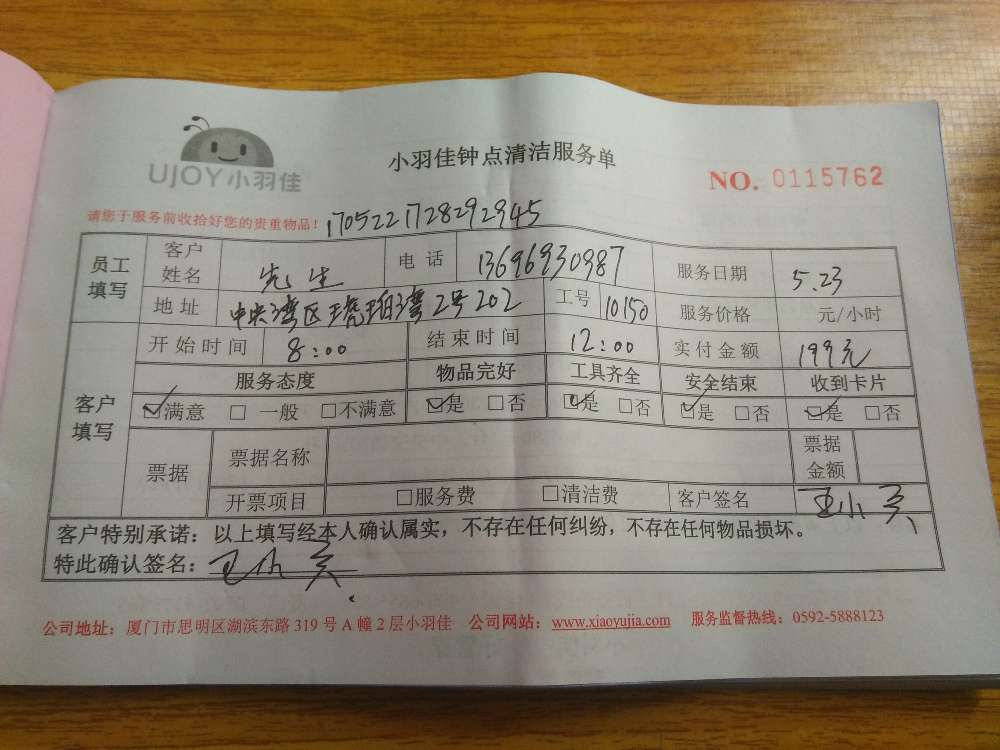 UJOY小羽佳
小羽佳钟点清洁服务单
NO. 0115762
请您于服务前收拾好您的贵重物品！ 170522172829 2945
员工填写 客户姓名 先生 电话 13696930987 服务日期 5.23
地址 中央湾区琥珀湾2号202 工号 10150 服务价格 元/小时
开始时间 8:00 结束时间 12:00 实付金额 199元
客户填写 服务态度 物品完好 工具齐全 安全结束 收到卡片
☑满意 □一般 □不满意 ☑是 □否 ☑是 □否 ☑是 □否 ☑是 □否
票据 票据名称 票据金额
开票项目 □服务费 □清洁费 客户签名 王小
客户特别承诺：以上填写经本人确认属实，不存在任何纠纷，不存在任何物品损坏。
特此确认签名：王小
公司地址：厦门市思明区湖滨东路 319 号 A 幢 2 层小羽佳 公司网站：www.xiaoyujia.com 服务监督热线：0592-5888123